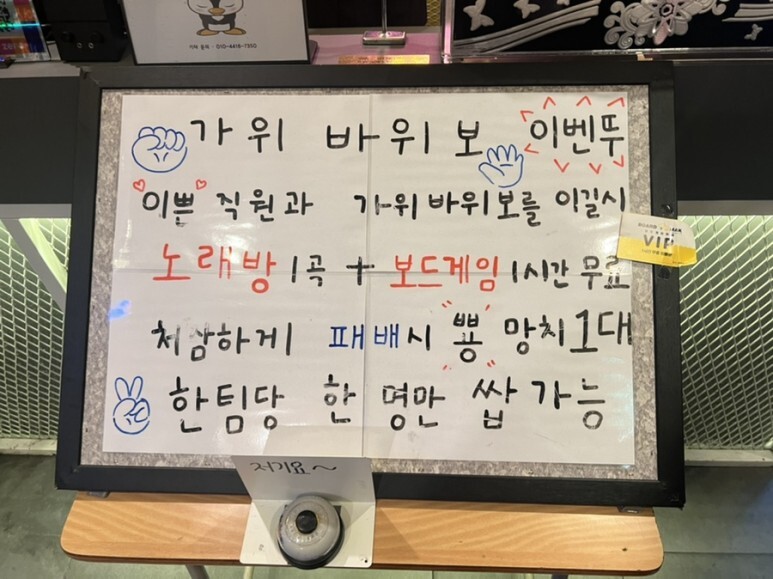 가위 바위보 이벤뚜
이쁜 직원과 가위바위보를 이길시
노래방 1곡 + 보드게임 1시간 무료
처참하게 패배시 뿅 망치 1대
한팀당 한 명만 쌉가능
VIP
저기요~